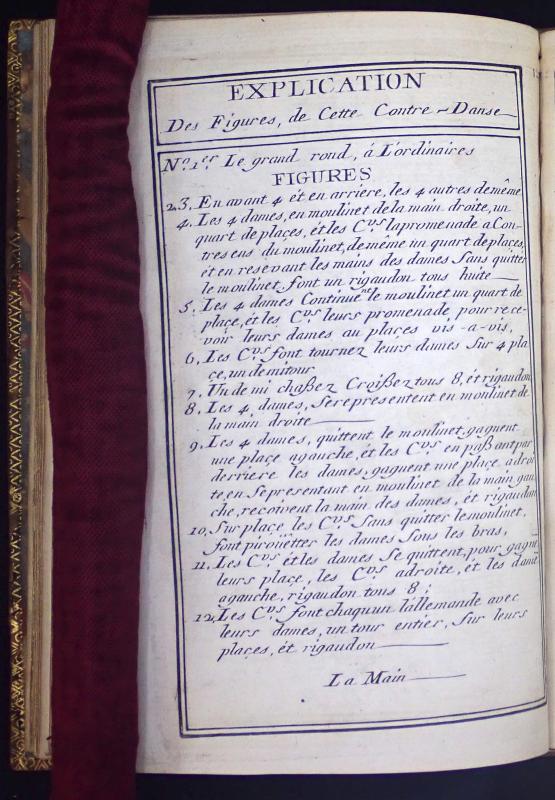 EXPLICATION
Des Figures, de Cette Contre-Danse
No. 1er Le grand rond, á L'ordinaires
FIGURES
2.3. En avant 4 ét en arriere, les 4 autres de même
4. Les 4 dames, en moulinet de la main droite, un
quart de places, ét les Cvrs la promenade a Con-
tre sens du moulinet, de même un quart de places,
ét en resevant les mains des dames Sans quitter
le moulinet, font un rigaudon tous huite
5. Les 4 dames Continuent le moulinet un quart de
place, ét les Cvrs leurs promenade, pour rece-
voir leurs dames au places vis-a-vis,
6. Les Cvrs font tournez leurs dames Sur 4 pla
ce, un demitour
7. Un de mi chaßez Croißez tous 8, ét rigaudon
8. Les 4, dames, Se representent en moulinet de
la main droite
9. Les 4 dames, quittent le moulinet, gagnent
une place agauche, ét les Cvrs en paßant par
derriere les dames, gagnent une place adroi
te, en Se presentant en moulinet de la main gau
che, recoivent la main des dames, ét rigaudon
10. Sur place les Cvrs Sans quitter le moulinet,
font piroüetter les dames Sous les bras,
11. Les Cvrs ét les dames Se quittent, pour gagne
leurs place, les Cvrs adroite, ét les dame
agauche, rigaudon tous 8;
12. Les Cvrs font chaquun l'allemande avec
leurs dames, un tour entier, Sur leurs
places, ét rigaudon
La Main